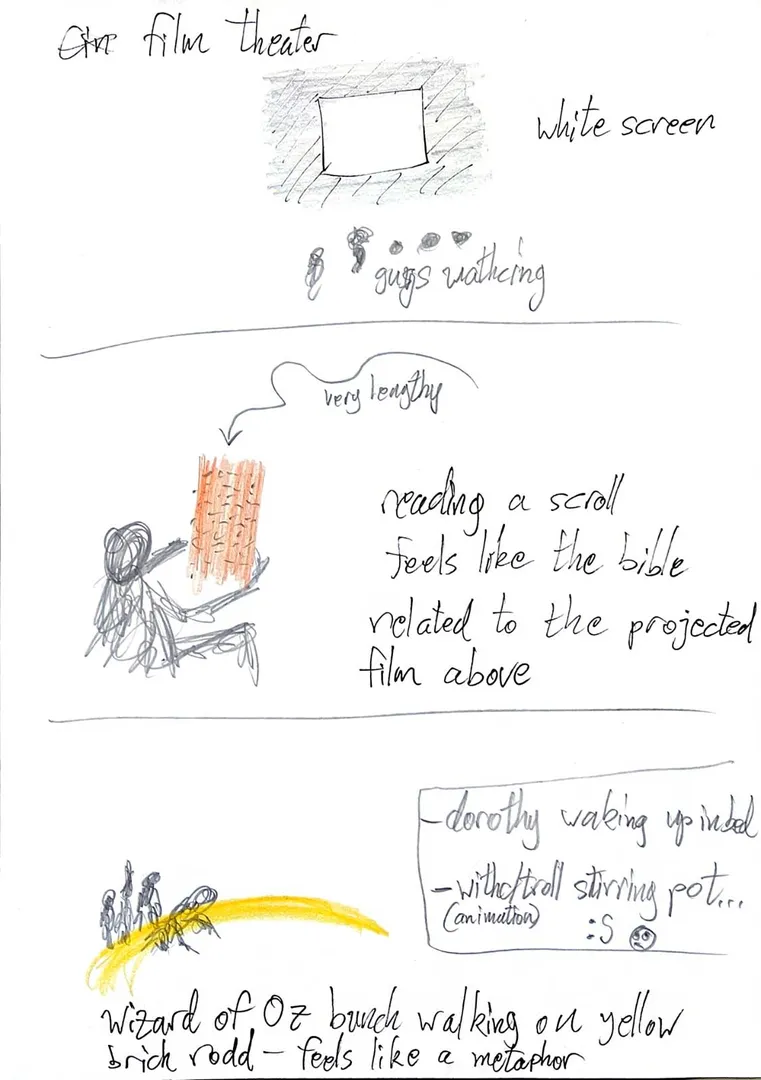 film theater
white screen
guys wathcing
very lengthy
reading a scroll
feels like the bible
related to the projected
film above
-dorothy waking up in bed
-withc/troll stirring pot...
(animation) :S
wizard of Oz bunch walking on yellow
brick rodd - feels like a metaphor